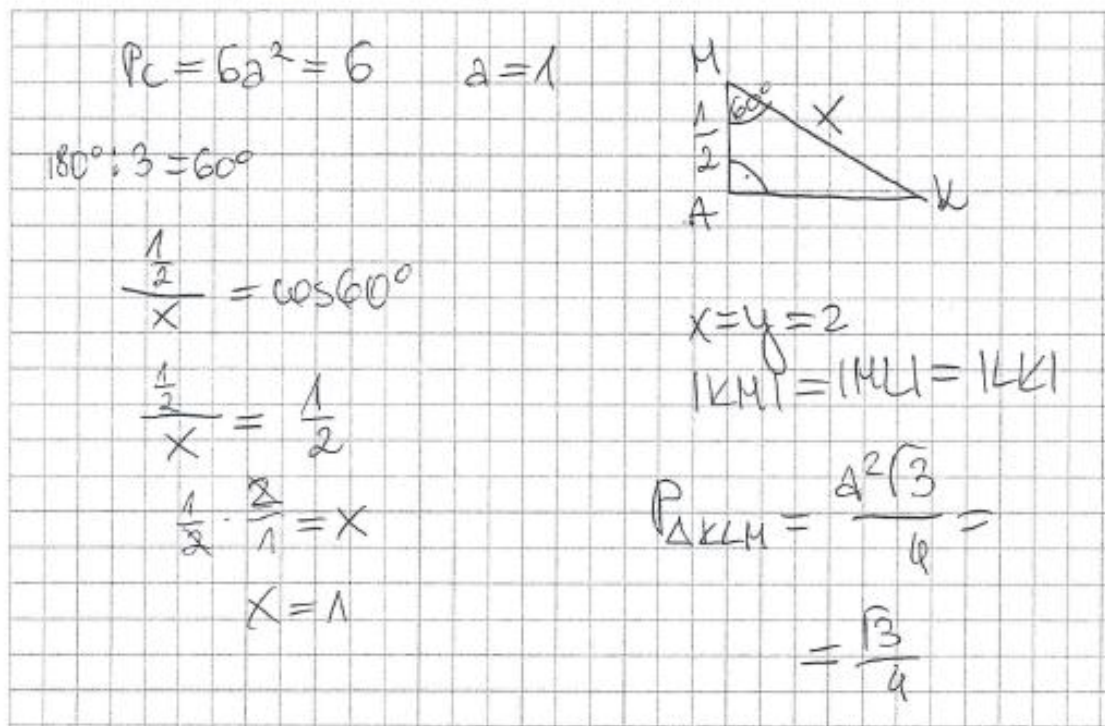 Pc = 6a² = 6   a = 1
180° : 3 = 60°
(1/2)/x = cos60°
(1/2)/x = 1/2
1/2 · 2/1 = x
x = 1
M
60°
x
1/2
A
K
x = y = 2
|KM| = |ML| = |LK|
P△KLM = a²√3/4 =
= √3/4